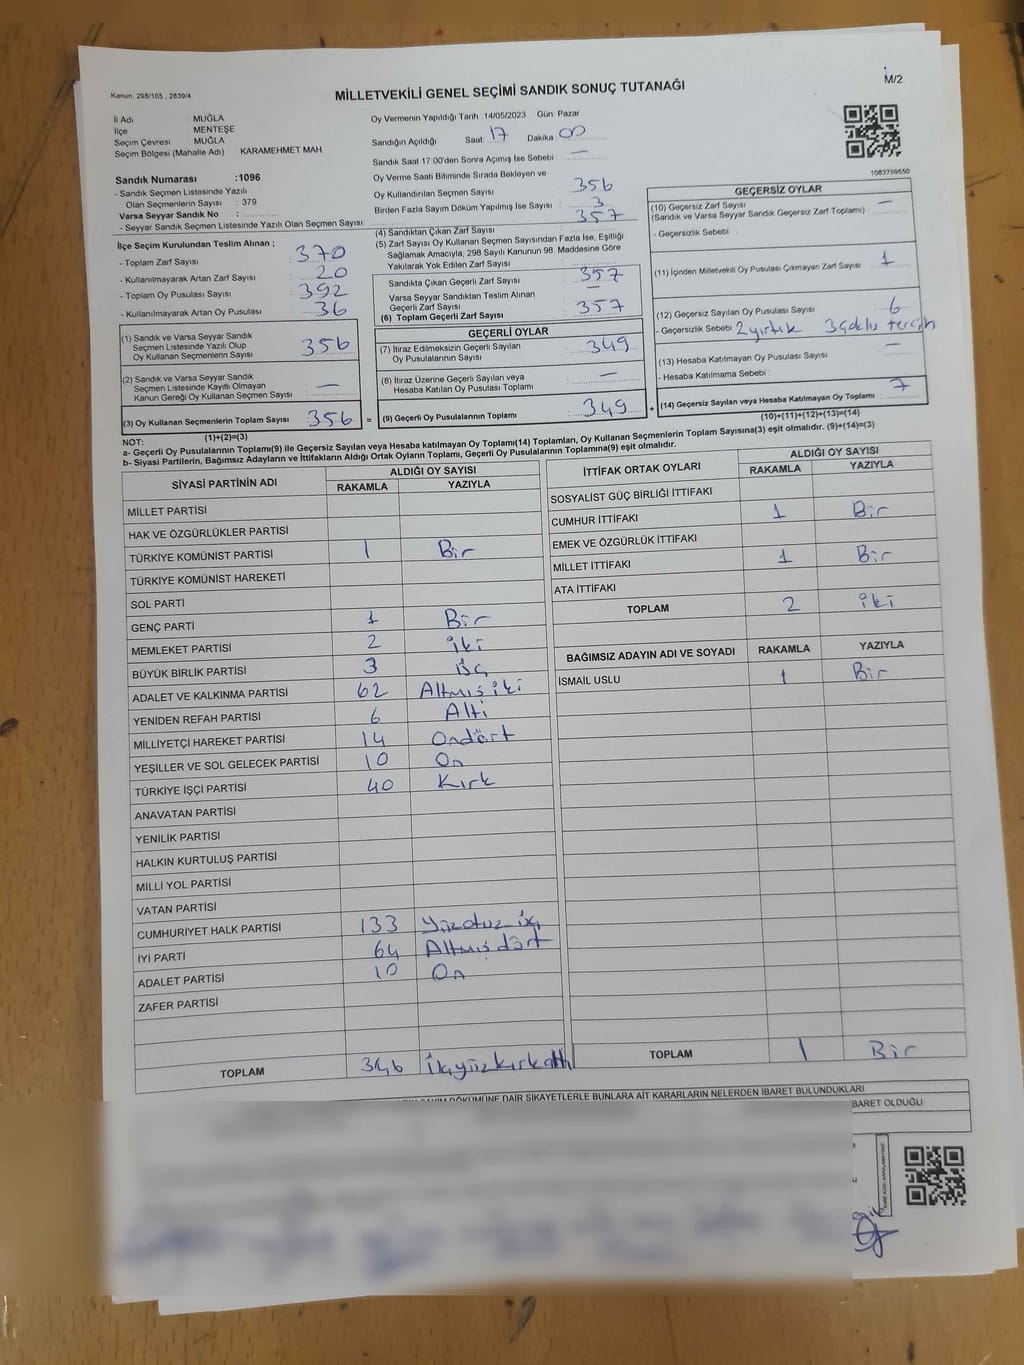 Kanun, 298/105 , 2839/4
MİLLETVEKİLİ GENEL SEÇİMİ SANDIK SONUÇ TUTANAĞI
M/2
İl Adı : MUĞLA
İlçe : MENTEŞE
Seçim Çevresi : MUĞLA
Seçim Bölgesi (Mahalle Adı) KARAMEHMET MAH.
Sandık Numarası :1096
- Sandık Seçmen Listesinde Yazılı
Olan Seçmenlerin Sayısı : 379
Varsa Seyyar Sandık No :
- Seyyar Sandık Seçmen Listesinde Yazılı Olan Seçmen Sayısı:
İlçe Seçim Kurulundan Teslim Alınan ;
- Toplam Zarf Sayısı : 370
- Kullanılmayarak Artan Zarf Sayısı : 20
- Toplam Oy Pusulası Sayısı : 392
- Kullanılmayarak Artan Oy Pusulası : 36
(1) Sandık ve Varsa Seyyar Sandık
Seçmen Listesinde Yazılı Olup
Oy Kullanan Seçmenlerin Sayısı : 356
(2) Sandık ve Varsa Seyyar Sandık
Seçmen Listesinde Kayıtlı Olmayan
Kanun Gereği Oy Kullanan Seçmen Sayısı : —
(3) Oy Kullanan Seçmenlerin Toplam Sayısı : 356 =
(1)+(2)=(3)
Oy Vermenin Yapıldığı Tarih : 14/05/2023 Gün: Pazar
Sandığın Açıldığı Saat : 17 Dakika : 00
Sandık Saat 17:00'den Sonra Açılmış İse Sebebi : —
Oy Verme Saati Bitiminde Sırada Bekleyen ve
Oy Kullandırılan Seçmen Sayısı : 356
Birden Fazla Sayım Döküm Yapılmış İse Sayısı : 3
(4) Sandıktan Çıkan Zarf Sayısı : 357
(5) Zarf Sayısı Oy Kullanan Seçmen Sayısından Fazla İse, Eşitliği
Sağlamak Amacıyla, 298 Sayılı Kanunun 98. Maddesine Göre
Yakılarak Yok Edilen Zarf Sayısı :
Sandıkta Çıkan Geçerli Zarf Sayısı : 357
Varsa Seyyar Sandıktan Teslim Alınan
Geçerli Zarf Sayısı : —
(6) Toplam Geçerli Zarf Sayısı : 357
GEÇERLİ OYLAR
(7) İtiraz Edilmeksizin Geçerli Sayılan
Oy Pusulalarının Sayısı : 349
(8) İtiraz Üzerine Geçerli Sayılan veya
Hesaba Katılan Oy Pusulası Toplamı : —
(9) Geçerli Oy Pusulalarının Toplamı : 349 +
1083759550
GEÇERSİZ OYLAR
(10) Geçersiz Zarf Sayısı : —
(Sandık ve Varsa Seyyar Sandık Geçersiz Zarf Toplamı)
- Geçersizlik Sebebi :
(11) İçinden Milletvekili Oy Pusulası Çıkmayan Zarf Sayısı : 1
(12) Geçersiz Sayılan Oy Pusulası Sayısı : 6
- Geçersizlik Sebebi : 2 yırtık 3 çoklu tercih
(13) Hesaba Katılmayan Oy Pusulası Sayısı : —
- Hesaba Katılmama Sebebi :
(14) Geçersiz Sayılan veya Hesaba Katılmayan Oy Toplamı : 7
(10)+(11)+(12)+(13)=(14)
NOT:
a- Geçerli Oy Pusulalarının Toplamı(9) ile Geçersiz Sayılan veya Hesaba katılmayan Oy Toplamı(14) Toplamları, Oy Kullanan Seçmenlerin Toplam Sayısına(3) eşit olmalıdır. (9)+(14)=(3)
b- Siyasi Partilerin, Bağımsız Adayların ve İttifakların Aldığı Ortak Oyların Toplamı, Geçerli Oy Pusulalarının Toplamına(9) eşit olmalıdır.
SİYASİ PARTİNİN ADI ALDIĞI OY SAYISI
RAKAMLA YAZIYLA
MİLLET PARTİSİ
HAK VE ÖZGÜRLÜKLER PARTİSİ
TÜRKİYE KOMÜNİST PARTİSİ 1 Bir
TÜRKİYE KOMÜNİST HAREKETİ
SOL PARTİ
GENÇ PARTİ 1 Bir
MEMLEKET PARTİSİ 2 iki
BÜYÜK BİRLİK PARTİSİ 3 üç
ADALET VE KALKINMA PARTİSİ 62 Altmış iki
YENİDEN REFAH PARTİSİ 6 Altı
MİLLİYETÇİ HAREKET PARTİSİ 14 Ondört
YEŞİLLER VE SOL GELECEK PARTİSİ 10 On
TÜRKİYE İŞÇİ PARTİSİ 40 Kırk
ANAVATAN PARTİSİ
YENİLİK PARTİSİ
HALKIN KURTULUŞ PARTİSİ
MİLLİ YOL PARTİSİ
VATAN PARTİSİ
CUMHURİYET HALK PARTİSİ 133
İYİ PARTİ 64 Altmış dört
ADALET PARTİSİ 10 On
ZAFER PARTİSİ
TOPLAM 346
İTTİFAK ORTAK OYLARI ALDIĞI OY SAYISI
RAKAMLA YAZIYLA
SOSYALİST GÜÇ BİRLİĞİ İTTİFAKI
CUMHUR İTTİFAKI 1 Bir
EMEK VE ÖZGÜRLÜK İTTİFAKI
MİLLET İTTİFAKI 1 Bir
ATA İTTİFAKI
TOPLAM 2 iki
BAĞIMSIZ ADAYIN ADI VE SOYADI RAKAMLA YAZIYLA
İSMAİL USLU 1 Bir
TOPLAM 1 Bir
SAYIM DÖKÜMÜNE DAİR ŞİKAYETLERLE BUNLARA AİT KARARLARIN NELERDEN İBARET BULUNDUKLARI
İBARET OLDUĞU